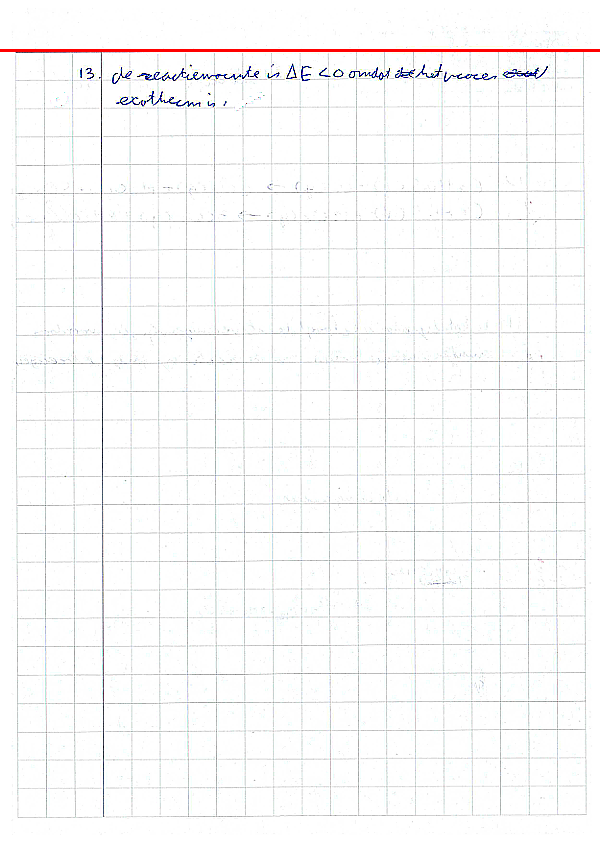 13. de reactiewarmte is ΔE < 0 omdat het proces
exotherm is.